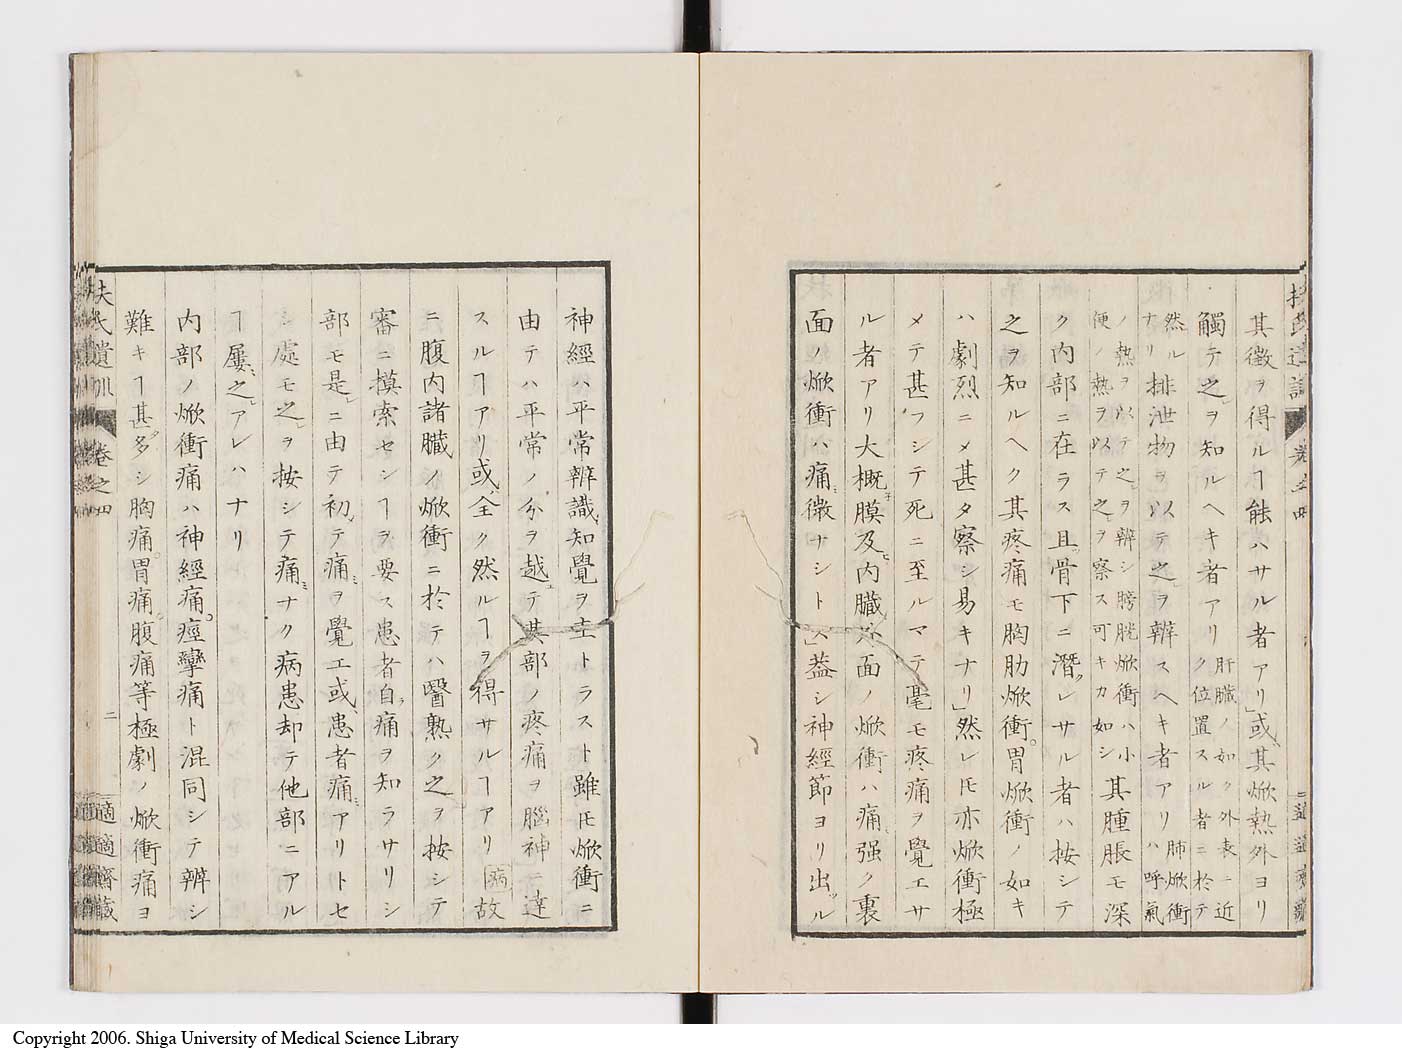 其徴ヲ得ルヿ能ハサル者アリ」或其焮熱外ヨリ
觸テ之ヲ知ルヘキ者アリ肝臓ノ如ク外表ニ近ク位置スル者ニ於テ
然ルナリ排泄物ヲ以テ之ヲ辨スヘキ者アリ肺焮衝ハ呼氣
ノ熱ヲ以テ之ヲ辨シ膀胱焮衝ハ小便ノ熱ヲ以テ之ヲ察ス可キカ如シ其腫脹モ深
ク内部ニ在ラス且骨下ニ潛レサル者ハ按シテ
之ヲ知ルヘク其疼痛モ胸肋焮衝。胃焮衝ノ如キ
ハ劇烈ニメ甚タ察シ易キナリ」然レ𪜈亦焮衝極
メテ甚フシテ死ニ至ルマテ毫モ疼痛ヲ覺エサ
ル者アリ大概膜及内臓外面ノ焮衝ハ痛強ク裏
面ノ焮衝ハ痛微ナシトス」葢シ神經節ヨリ出ル
神經ハ平常辨識知覺ヲ主トラスト雖𪜈焮衝ニ
由テハ平常ノ分ヲ越テ其部ノ疼痛ヲ腦神ニ達
スルヿアリ或全ク然ルヿヲ得サルヿアリ故
ニ腹内諸臓ノ焮衝ニ於テハ醫熟ク之ヲ按シテ
審ニ摸索センヿヲ要ス患者自痛ヲ知ラサリシ
部モ是ニ由テ初テ痛ヲ覺エ或患者痛アリトセ
シ處モ之ヲ按シテ痛ナク病患却テ他部ニアル
ヿ屢之アレハナリ
内部ノ焮衝痛ハ神經痛。痙攣痛ト混同シテ辨シ
難キヿ甚多シ胸痛。胃痛。腹痛等極劇ノ焮衝痛ヨ
扶氏遺訓 卷之四 二 適適齋藏
Copyright 2006. Shiga University of Medical Science Library